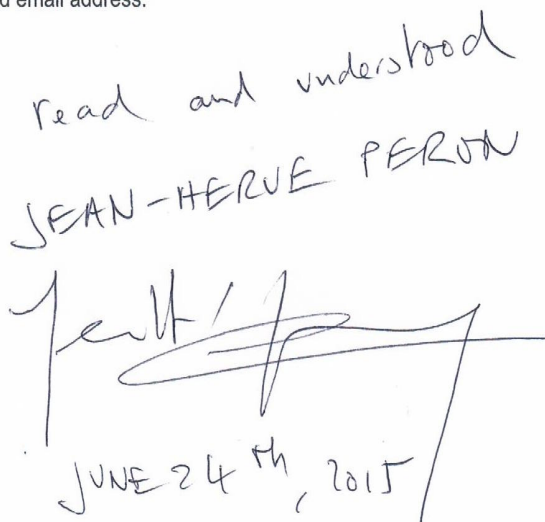 d email address.
read and understood
JEAN-HERVE PERON
JUNE 24th, 2015